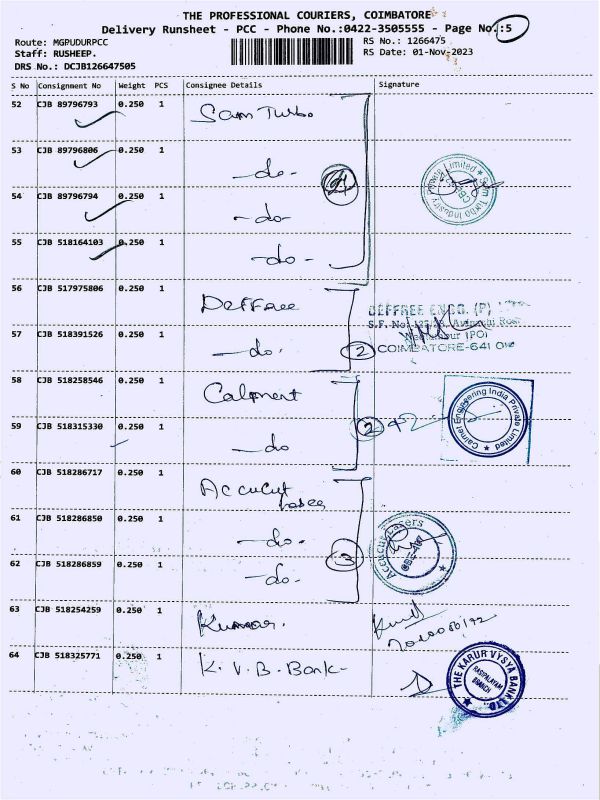 THE PROFESSIONAL COURIERS, COIMBATORE
Delivery Runsheet - PCC - Phone No.:0422-3505555 - Page No.:5
Route: MGPUDURPCC
RS No.: 1266475
Staff: RUSHEEP.
RS Date: 01-Nov-2023
DRS No.: DCJB126647505
S No Consignment No Weight PCS Consignee Details Signature
52 CJB 89796793 0.250 1 Sam Turbo
53 CJB 89796806 0.250 1 -do-
54 CJB 89796794 0.250 1 -do-
55 CJB 518164103 0.250 1 -do-
4
Private Limited ★ Sam Turbo Industry
56 CJB 517975806 0.250 1 Deffree
57 CJB 518391526 0.250 1 -do-
2
DEFFREE ENGG. (P)
S.F. No.
(PO)
COIMBATORE-641
58 CJB 518258546 0.250 1 Calment
59 CJB 518315330 0.250 1 -do
2
Engineering India Private Limited ★
60 CJB 518286717 0.250 1 Accucut
61 CJB 518286850 0.250 1 -do-
62 CJB 518286859 0.250 1 -do-
3
Accucut Lasers
63 CJB 518254259 0.250 1 Kumar.
64 CJB 518325771 0.250 1 K.V.B. Bank-
THE KARUR VYSYA BANK LTD
BRANCH